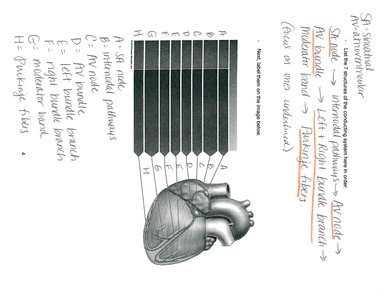 SA-sinoatrial
AV-atrioventricular
List the 7 structures of the conducting system here in order:
SA node → internodal pathways → AV node →
AV bundle → Left + Right bundle branch →
Moderator band → Purkinje fibers
(focus on ones underlined)
- Next, label them on the image below.
A
B
C
D
E
F
G
H
A
B
C
D
E
F
G
H
A = SA node
B = internodal pathways
C = AV node
D = AV bundle
E = left bundle branch
F = right bundle branch
G = moderator band
H = Purkinje fibers
4